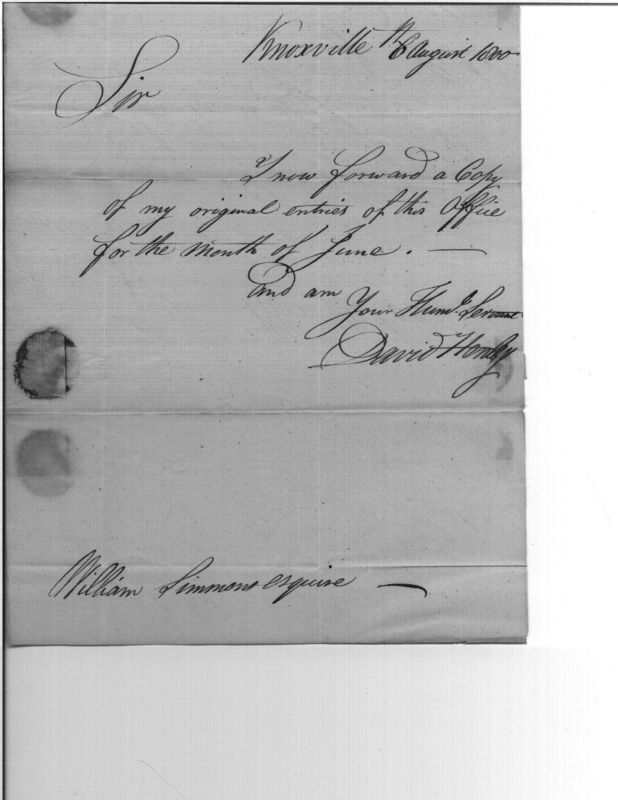 Knoxville 8 August 1800
Sir
I now forward a Copy
of my original entries of this Office
for the month of June. —
and am
Your Humb.e Servant
David Henley
William Simmons esquire —